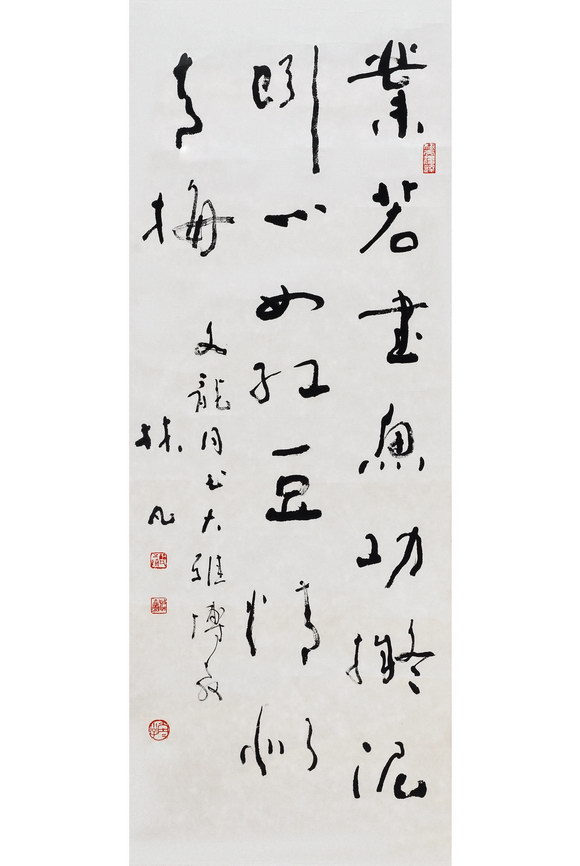 業若書魚功擬泥
心如紅豆情似
青梅
文龍同志大雅博教
林凡